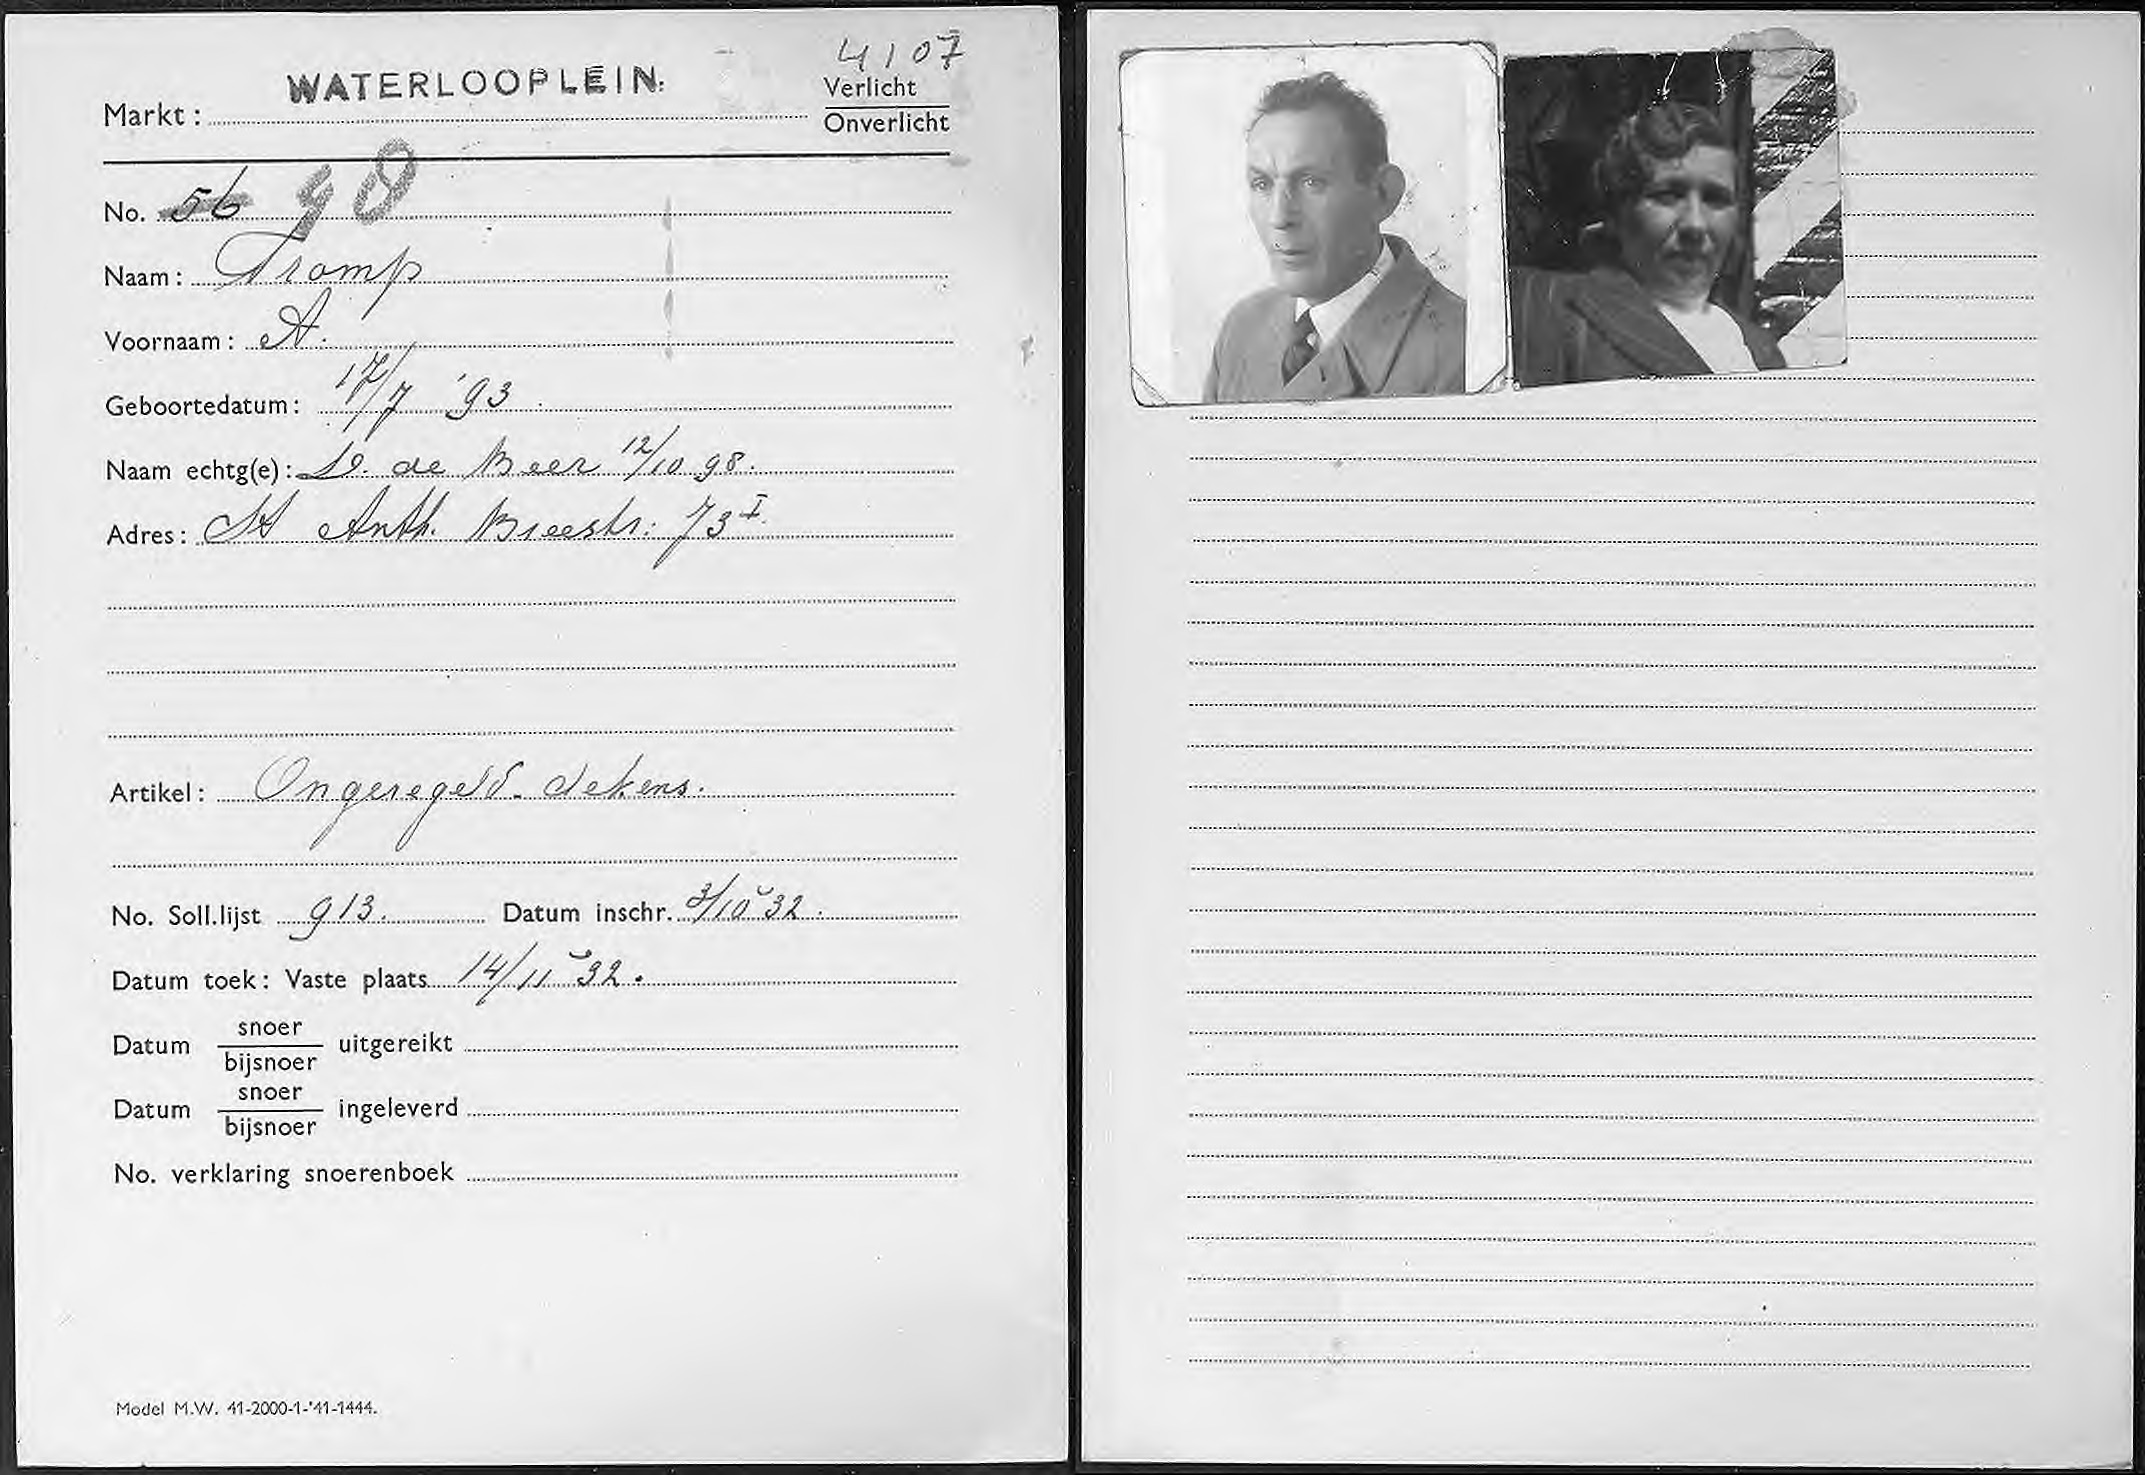 4107
WATERLOOPLEIN.
Markt:
Verlicht
Onverlicht
No. 56 98
Naam: Tromp
Voornaam: A.
Geboortedatum: 17/7 '93
Naam echtg(e): de Beer 12/10 98.
Adres: St Anth. Breestr: 73 I
Artikel: Ongeregeld. dekens.
No. Soll.lijst 913. Datum inschr. 3/10 32.
Datum toek: Vaste plaats 14/11 32.
Datum snoer/bijsnoer uitgereikt
Datum snoer/bijsnoer ingeleverd
No. verklaring snoerenboek
Model M.W. 41-2000-1-'41-1444.